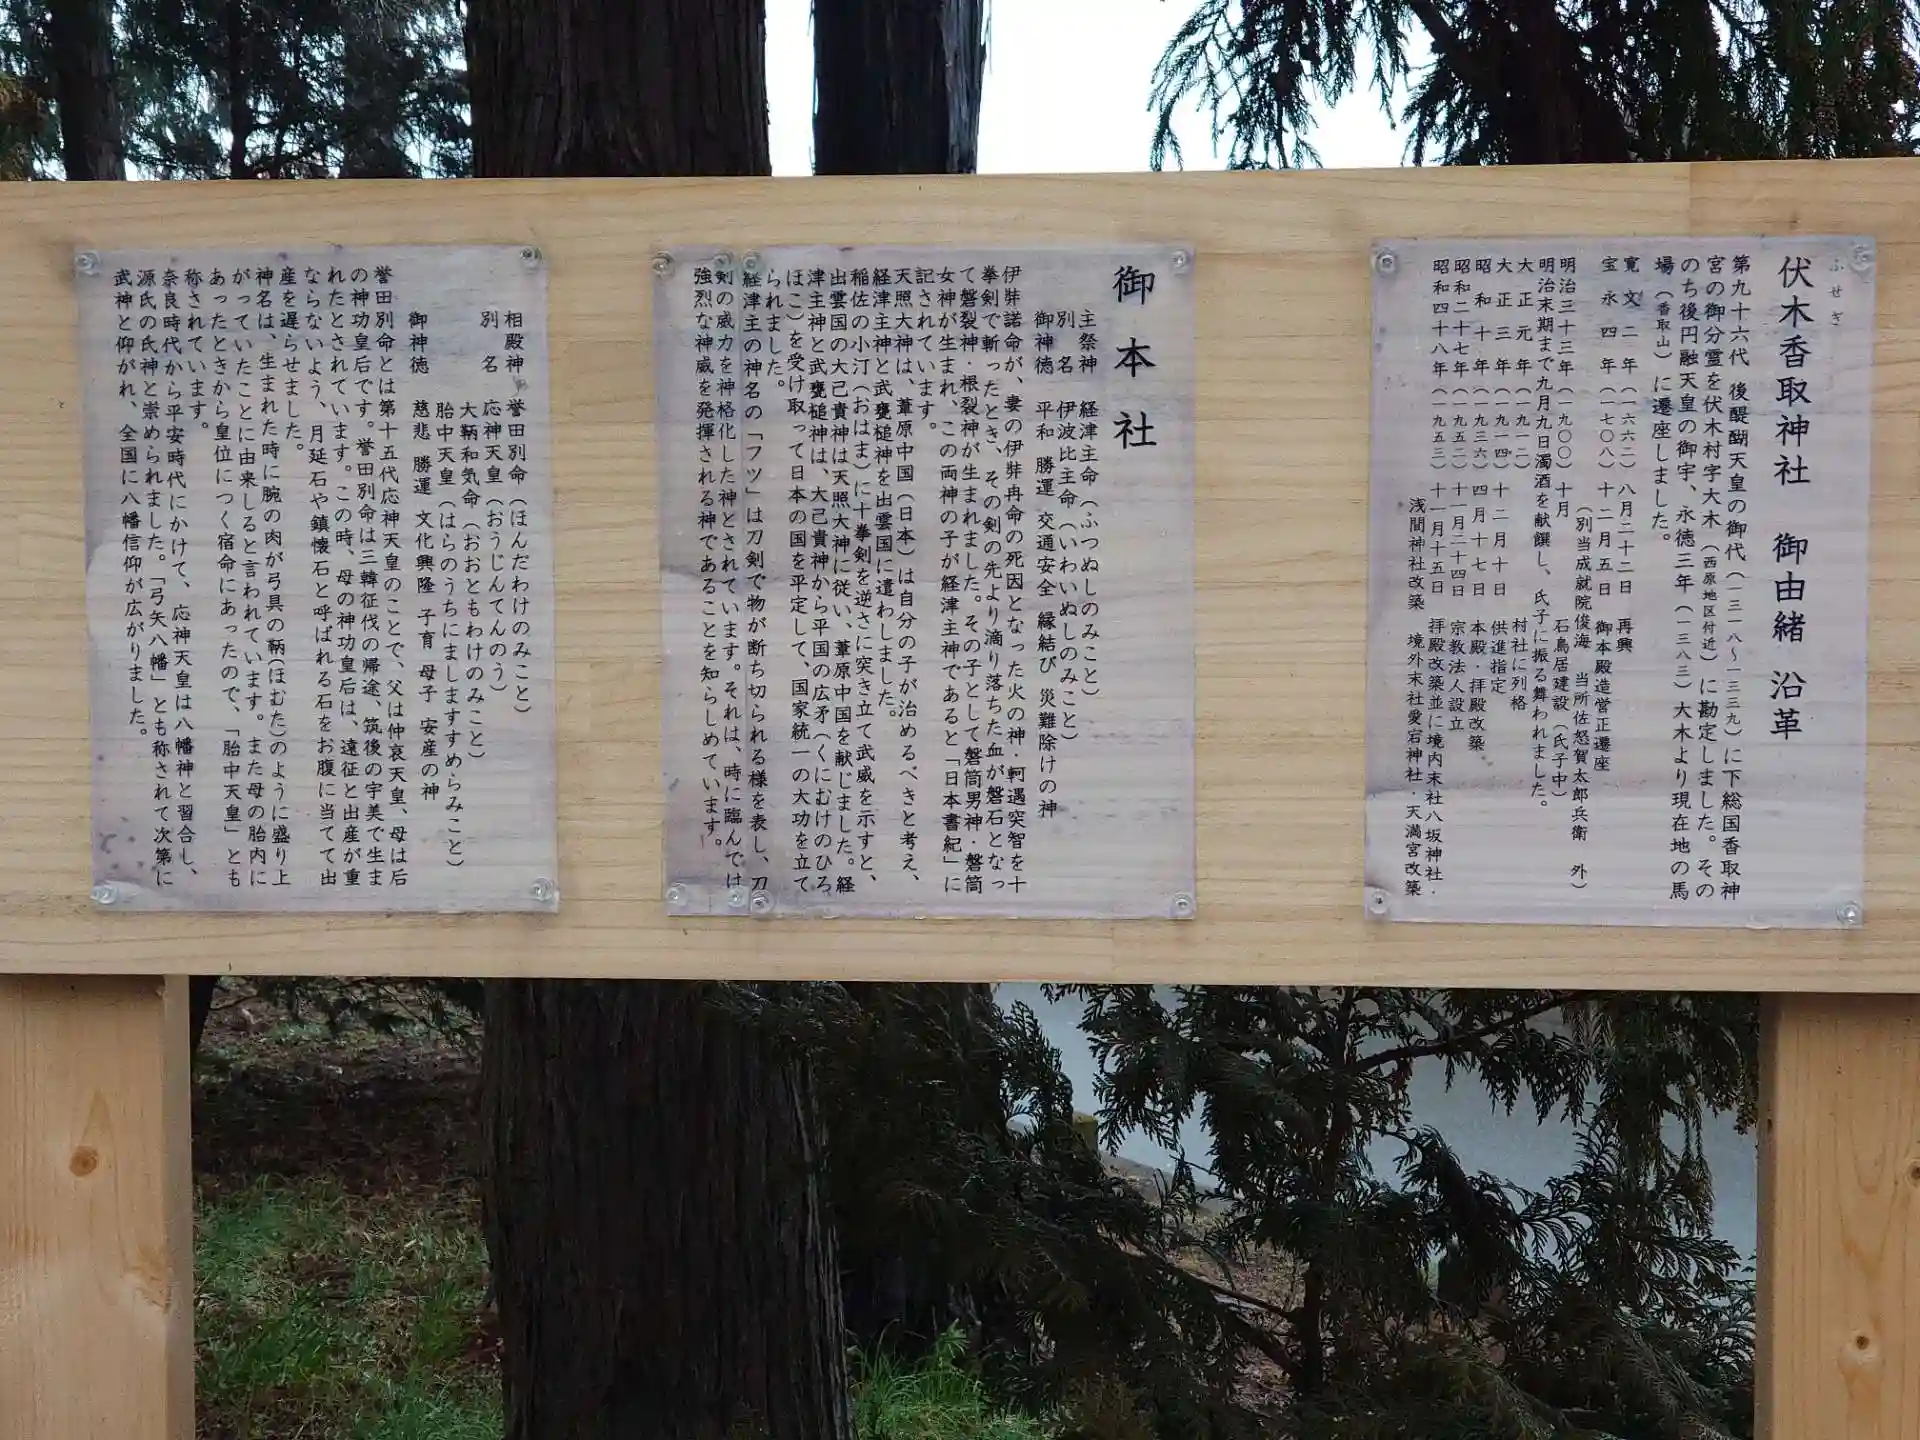 ふせぎ
伏木香取神社　御由緒 沿革
第九十六代 後醍醐天皇の御代（一三一八～一三三九）に下総国香取神
宮の御分霊を伏木村字大木（西原地区付近）に勘定しました。その
のち後円融天皇の御宇、永徳三年（一三八三）大木より現在地の馬
場（香取山）に遷座しました。
寛文二年（一六六二）八月二十二日　再興
宝永四年（一七〇八）十二月五日　御本殿造営正遷座
（別当成就院俊海　当所佐怒賀太郎兵衛　外）
明治三十三年（一九〇〇）十月　石鳥居建設（氏子中）
明治末期まで九月九日濁酒を献饌し、氏子に振る舞われました。
大正元年（一九一二）　村社に列格
大正三年（一九一四）十二月十日　供進指定
昭和十年（一九三六）四月十七日　本殿・拝殿改築
昭和二十七年（一九五二）十一月二十四日　宗教法人設立
昭和四十八年（一九五三）十一月十五日　拝殿改築並に境内末社八坂神社・
浅間神社改築　境外末社愛宕神社・天満宮改築
御本社
主祭神　経津主命（ふつぬしのみこと）
別名　伊波比主命（いわいぬしのみこと）
御神徳　平和 勝運 交通安全 縁結び 災難除けの神
伊弉諾命が、妻の伊弉冉命の死因となった火の神・軻遇突智を十
拳剣で斬ったとき、その剣の先より滴り落ちた血が磐石となっ
て磐裂神・根裂神が生まれました。その子として磐筒男神・磐筒
女神が生まれ、この両神の子が経津主神であると「日本書紀」に
記されています。
天照大神は、葦原中国（日本）は自分の子が治めるべきと考え、
経津主神と武甕槌神を出雲国に遣わしました。
稲佐の小汀（おはま）に十拳剣を逆さに突き立て武威を示すと、
出雲国の大己貴神は天照大神に従い、葦原中国を献じました。経
津主神と武甕槌神は、大己貴神から平国の広矛（くにむけのひろ
ほこ）を受け取って日本の国を平定して、国家統一の大功を立て
られました。
経津主の神名の「フツ」は刀剣で物が断ち切られる様を表し、刀
剣の威力を神格化した神とされています。それは、時に臨んでは
強烈な神威を発揮される神であることを知らしめています。
相殿神　誉田別命（ほんだわけのみこと）
別名　応神天皇（おうじんてんのう）
大鞆和気命（おおともわけのみこと）
胎中天皇（はらのうちにましますすめらみこと）
御神徳　慈悲 勝運 文化興隆 子育 母子 安産の神
誉田別命とは第十五代応神天皇のことで、父は仲哀天皇、母は后
の神功皇后です。誉田別命は三韓征伐の帰途、筑後の宇美で生ま
れたとされています。この時、母の神功皇后は、遠征と出産が重
ならないよう、月延石や鎮懐石と呼ばれる石をお腹に当てて出
産を遅らせました。
神名は、生まれた時に腕の肉が弓具の鞆(ほむた)のように盛り上
がっていたことに由来しると言われています。また母の胎内に
あったときから皇位につく宿命にあったので、「胎中天皇」とも
称されています。
奈良時代から平安時代にかけて、応神天皇は八幡神と習合し、
源氏の氏神と崇められました。「弓矢八幡」とも称されて次第に
武神と仰がれ、全国に八幡信仰が広がりました。